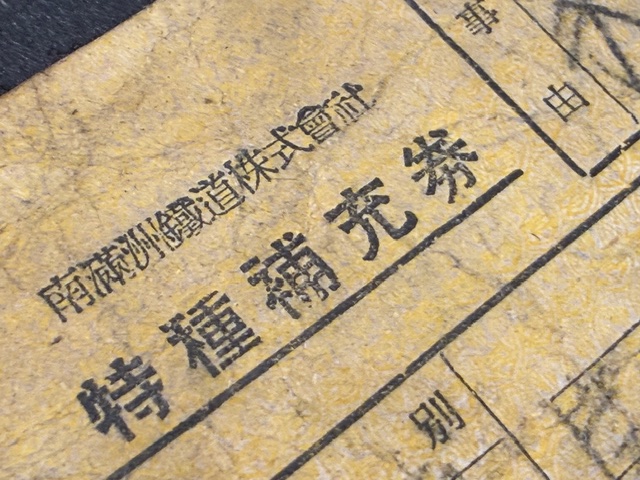 南滿洲鐵道株式會社
特種補充券
事由
別